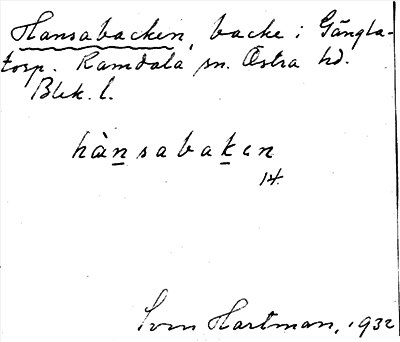 Hansabacken, backe i Gängla-
torp. Ramdala sn. Östra hd.
Blek. l.
hànsabaken
14.
Sven Hartman, 1932